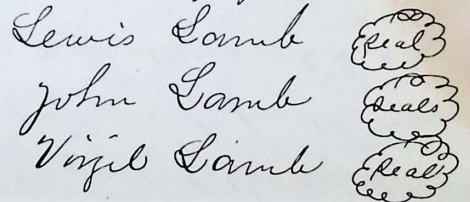 Lewis Lamb Seal
John Lamb Seals
Virgil Lamb Seal